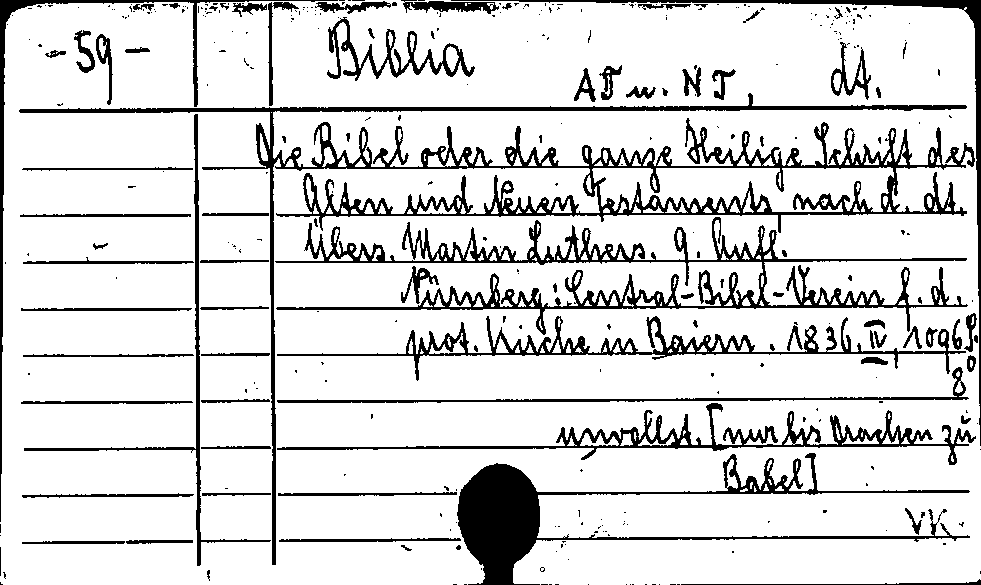 -59-
Biblia
AT u. NT, dt.
Die Bibel oder die ganze Heilige Schrift des
Alten und Neuen Testaments nach d. dt.
Übers. Martin Luthers. 9. Aufl.
Nürnberg: Central-Bibel-Verein f. d.
prot. Kirche in Baiern. 1836. IV, 1096 S.
8°
unvollst. [nur bis Drachen zu
Babel]
VK